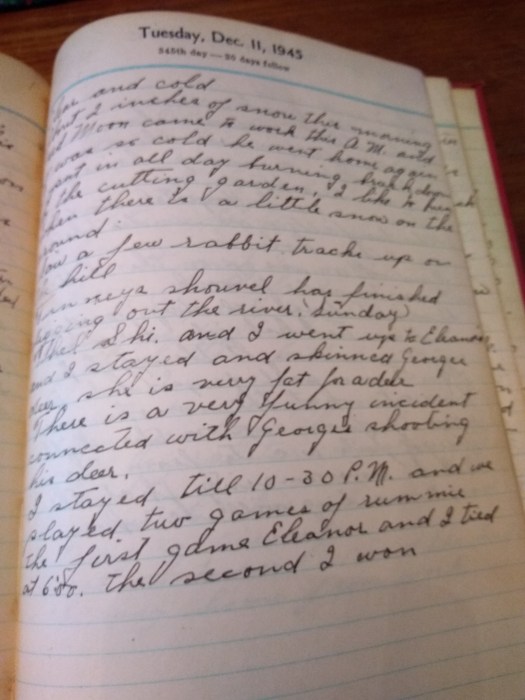 Tuesday, Dec. 11, 1945
345th day — 20 days follow
and cold
2 inches of snow this morning
Moon came to work this A.M. and
was so cold he went home again
in all day burning brush down
the cutting garden, I like to
there is a little snow on the
ound.
a few rabbit tracks up on
hill
shouvel has finished
out the river. Sunday
Shi. and I went up to Eleanors
and I stayed and skinned Georges
deer, she is very fat for a deer
There is a very funny incident
connected with Georges shooting
his deer.
I stayed till 10-30 P.M. and we
played two games of rummie
the first game Eleanor and I tied
at 6
the second I won